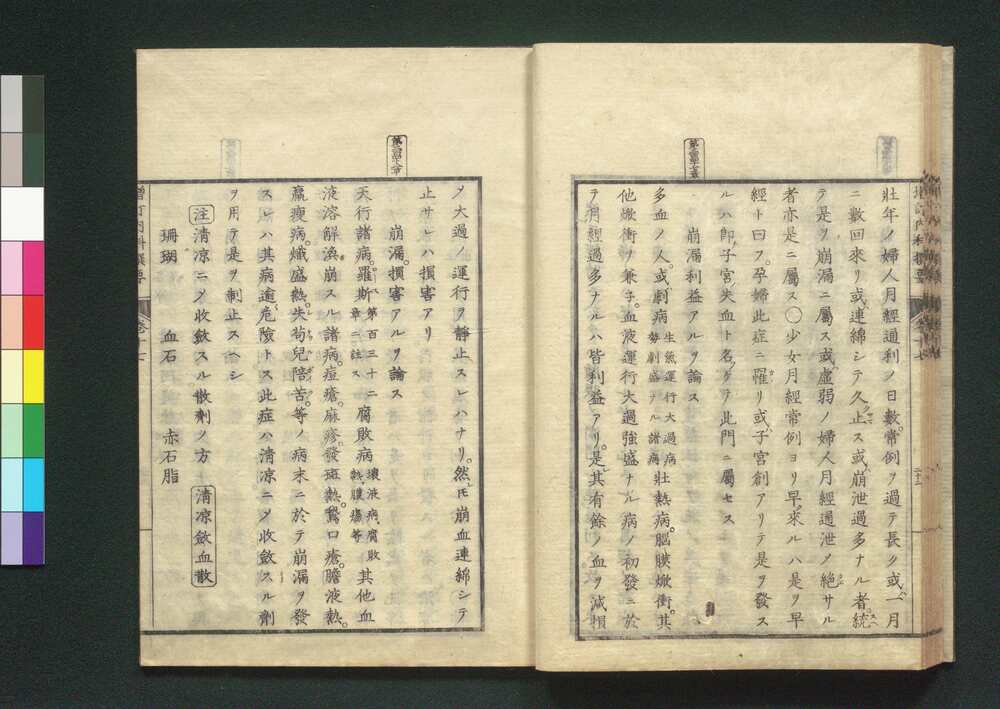 壯年ノ婦人月經通利ノ日數。常例ヲ過テ長ク或ハ一月
ニ數回來リ或ハ連綿シテ久ク止ス或ハ崩泄過多ナル者。統
テ是ヲ崩漏ニ屬ス或ハ虛弱ノ婦人月經過泄ノ絶サル
者亦是ニ屬ス○少女月經常例ヨリ早ク來ルハ是ヲ早
經ト曰フ。孕婦此症ニ罹リ或ハ子宮創アリテ是ヲ發ス
ルハ即チ子宮失血ト名ケテ此門ニ屬セス
崩漏利益アルヲ論ス
多血ノ人。或ハ劇病 生氣運行大過病勢劇盛ナル諸病 壯熱病。腦膜焮衝。其
他焮衝ヲ兼子。血液運行大過強盛ナル病ノ初發ニ於
テ月經過多ナルハ皆利益アリ。是レ其有餘ノ血ヲ減損
ノ大過ノ運行ヲ靜止スレハナリ。然氏崩血連綿シテ
止サレハ損害アリ
崩漏。損害アルヲ論ス
天行諸病。羅斯 第百三十二章ニ注ス 腐敗病 壞液病、腐敗熱、膿瘍等 其他血
液溶解渙崩スル諸病。痘瘡。麻疹。發斑熱。鵞口瘡。膽液熱。
羸瘦病。熾盛熱。失苟兒陪苦。等ノ病末ニ於テ崩漏ヲ發
スレハ其病逾危險トス此症ハ清凉ニノ收斂スル劑
ヲ用テ是ヲ制止スヘシ
注 清凉ニノ收斂スル散劑ノ方 清凉斂血散
珊瑚 血石 赤石脂